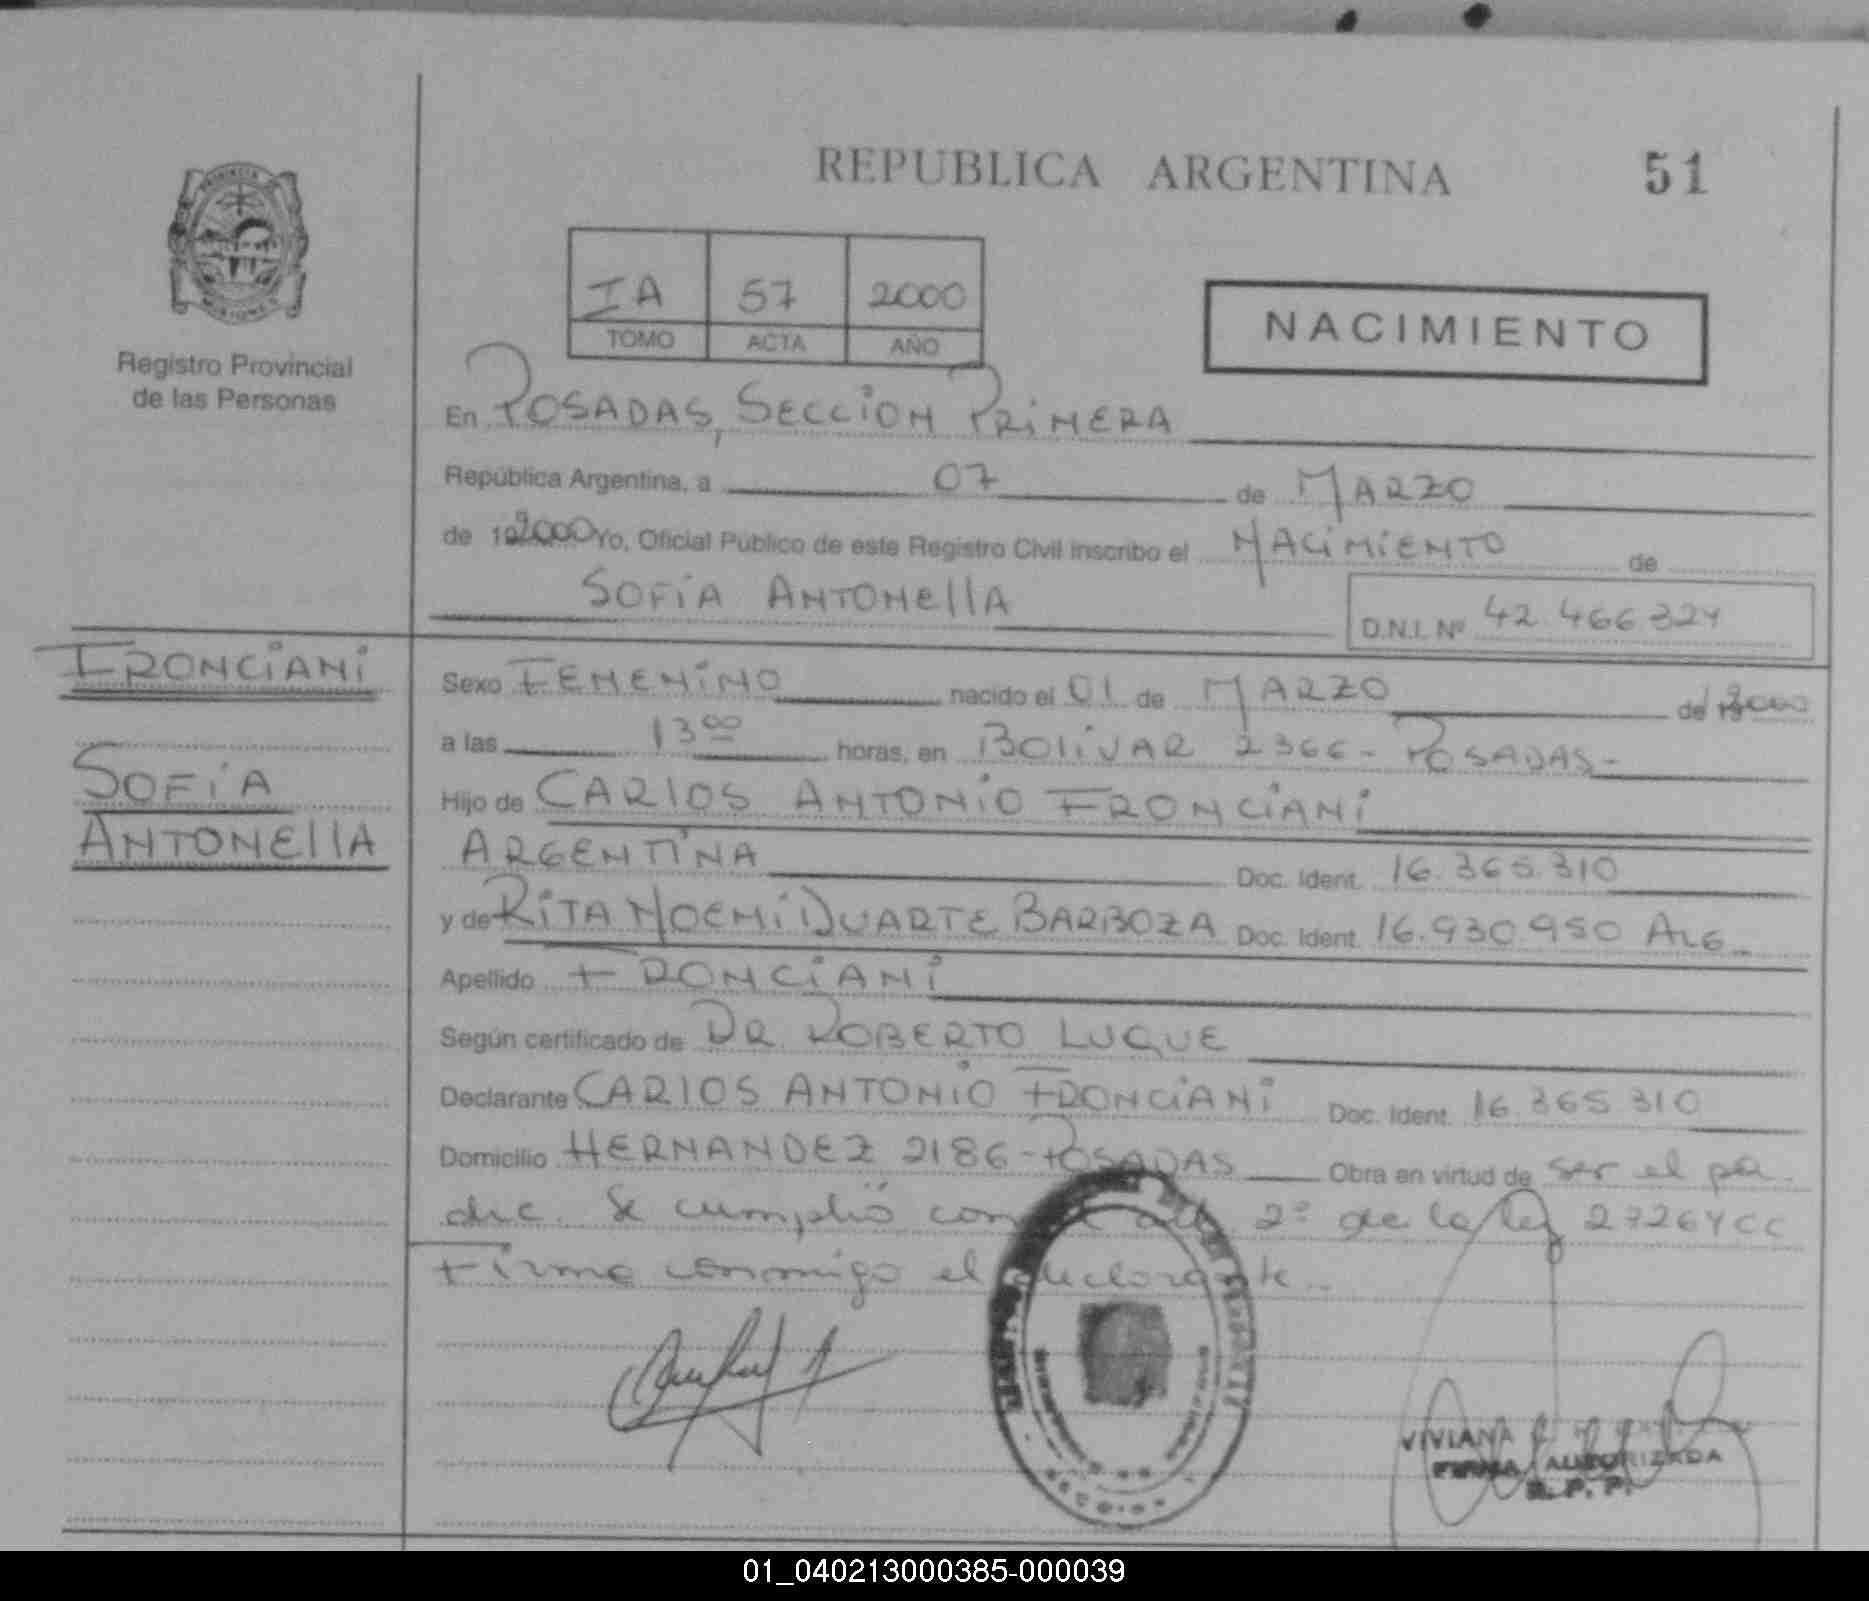 REPUBLICA ARGENTINA
51
IA 57 2000
TOMO ACTA AÑO
NACIMIENTO
Registro Provincial
de las Personas
En POSADAS, SECCION PRIMERA
República Argentina, a 07 de MARZO
de 192000 Yo, Oficial Público de este Registro Civil inscribo el NACIMIENTO de
SOFIA ANTONELLA
D.N.I. Nº 42.466.324
FRONCIANI
SOFIA
ANTONELLA
Sexo FEMENINO nacido el 01 de MARZO de 2000
a las 13 00 horas, en BOLIVAR 2366 - POSADAS -
Hijo de CARLOS ANTONIO FRONCIANI
ARGENTINA Doc. Ident. 16.365.310
y de RITA NOEMI DUARTE BARBOZA Doc. Ident. 16.930.950 ARG
Apellido FRONCIANI
Según certificado de DR ROBERTO LUQUE
Declarante CARLOS ANTONIO FRONCIANI Doc. Ident. 16.365.310
Domicilio HERNANDEZ 2186 - POSADAS Obra en virtud de ser el pa
dre. Se cumplió con el art. 2º de la ley
Firma conmigo el declarante.
VIVIANA
FIRMA AUTORIZADA
R.P.P.
01_040213000385-000039